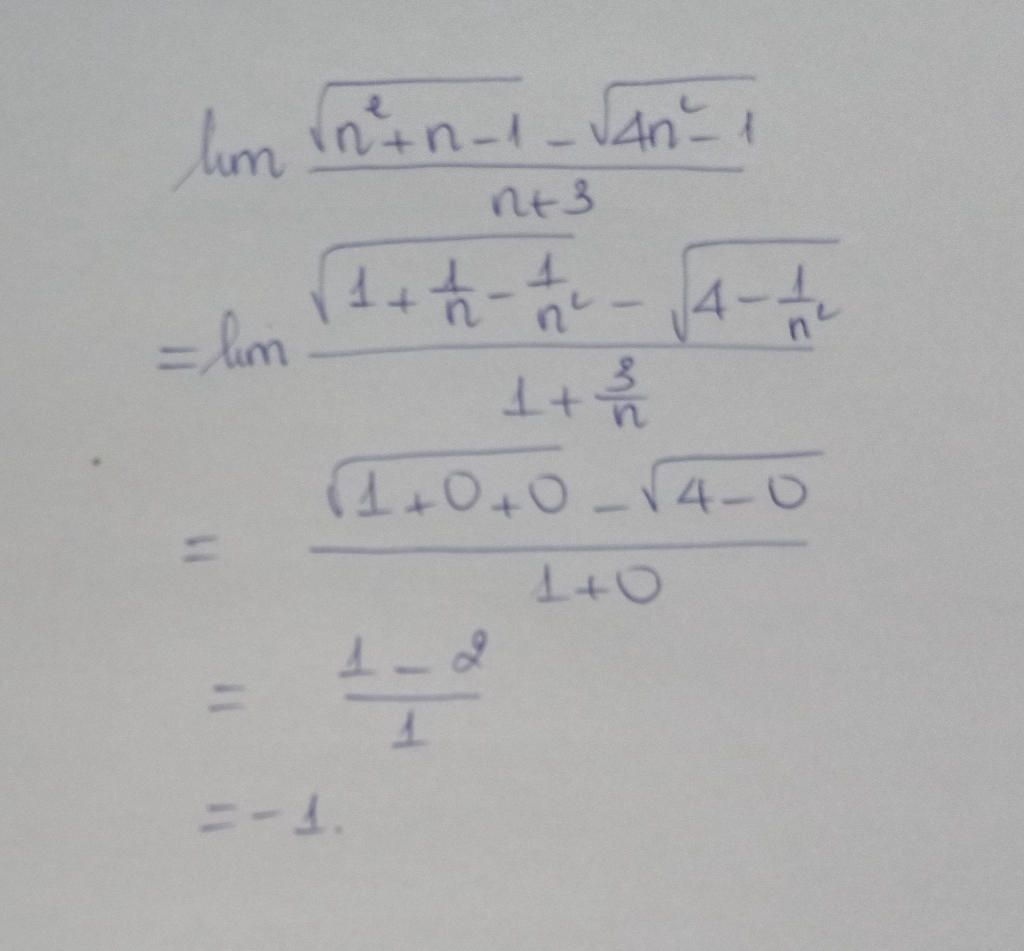 lim (√(n²+n-1) - √(4n²-1))/(n+3)
= lim (√(1+1/n-1/n²) - √(4-1/n²))/(1+3/n)
= (√(1+0+0) - √(4-0))/(1+0)
= (1-2)/1
= -1.